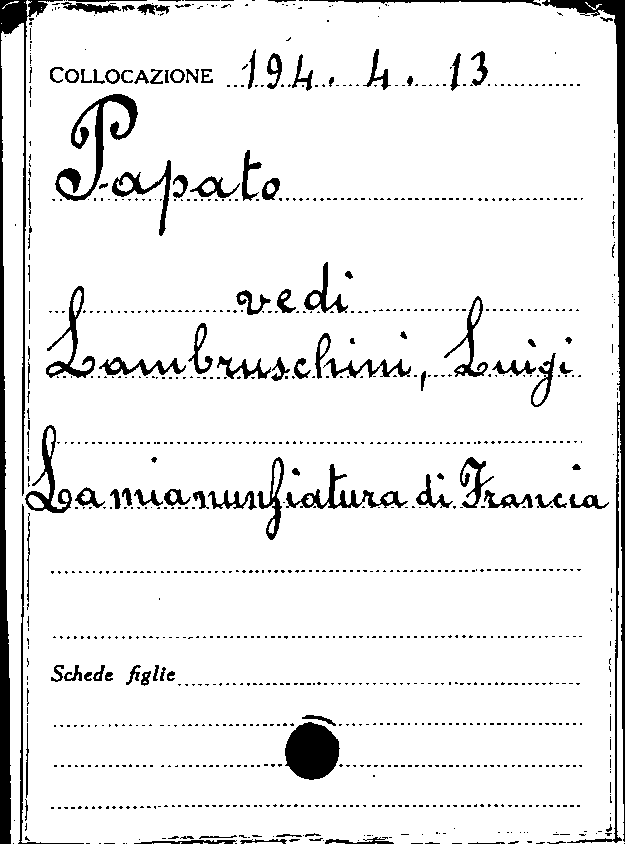 COLLOCAZIONE 194. 4. 13
Papato
vedi
Lambruschini, Luigi
La mia nunziatura di Francia
Schede figlie